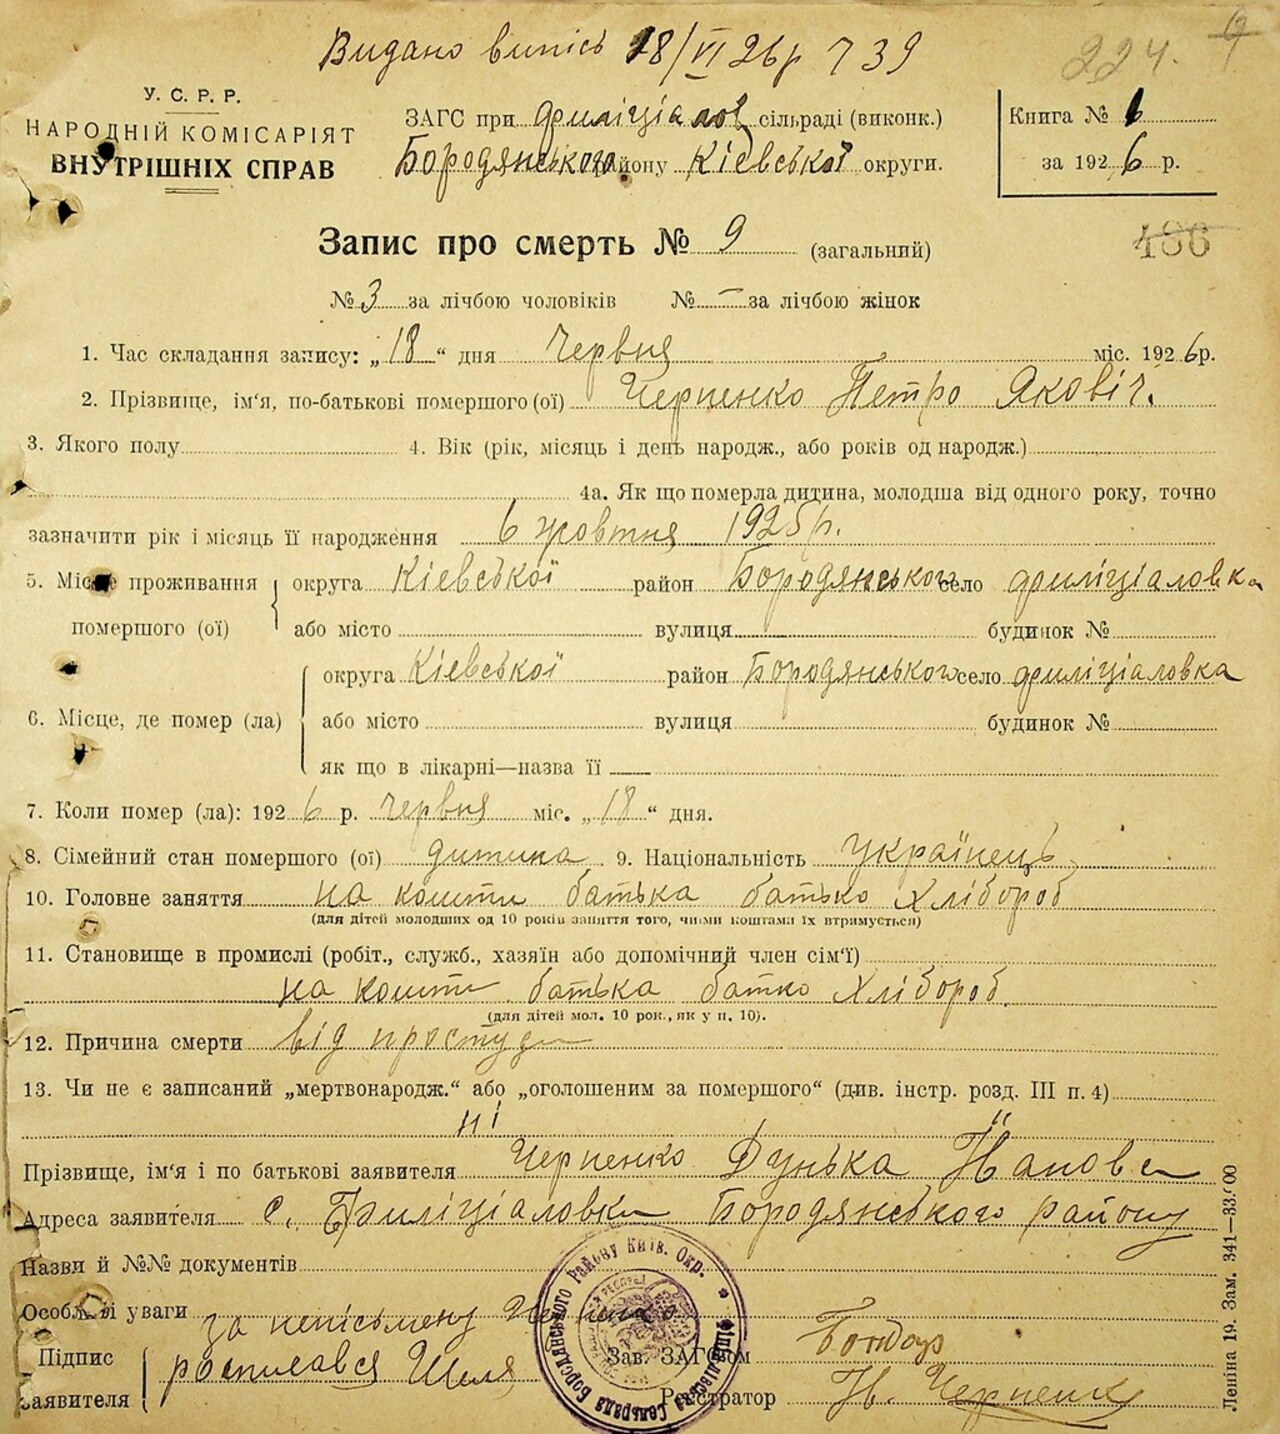 Видано випісь 18/VI 26 р 739
224.
У. С. Р. Р.
НАРОДНІЙ КОМІСАРІЯТ
ВНУТРІШНІХ СПРАВ
ЗАГС при філіціалов сільраді (виконк.)
Бородянського району Кіевської округи.
Книга № 1
за 1926 р.
Запис про смерть № 9 (загальний)
436
№ 3 за лічбою чоловіків № — за лічбою жінок
1. Час складання запису: „18“ дня Червня міс. 1926 р.
2. Прізвище, ім'я, по-батькові помершого (ої) Черпенко Петро Яковіч.
3. Якого полу 4. Вік (рік, місяць і день народж., або років од народж.)
4а. Як що померла дитина, молодша від одного року, точно
зазначити рік і місяць її народження 6 жовтня 1925 р.
5. Місце проживання помершого (ої) округа Кіевської район Бородянського село філіціаловка
або місто вулиця будинок №
6. Місце, де помер (ла) округа Кіевської район Бородянського село філіціаловка
або місто вулиця будинок №
як що в лікарні—назва її
7. Коли помер (ла): 1926 р. червня міс. „18“ дня.
8. Сімейний стан помершого (ої) дитина 9. Національність Українець
10. Головне заняття на кошти батька батько хлібороб
(для дітей молодших од 10 років заняття того, чиїми коштами їх втримується)
11. Становище в промислі (робіт., служб., хазяїн або допомічний член сім'ї)
на кошти батька батко хлібороб.
(для дітей мол. 10 рок., як у п. 10).
12. Причина смерти від простуди
13. Чи не є записаний „мертвонародж.“ або „оголошеним за помершого“ (див. інстр. розд. III п. 4)
ні
Прізвище, ім'я і по батькові заявителя Черпенко Дунька
Адреса заявителя с. Філіціаловка Бородянського району
Назви й №№ документів
Особливі уваги
за непісьмену Черпенко
Підпис заявителя росписався Шиля
Зав. ЗАГСом Бондар
Реєстратор Черпенк
Бородянського Району Київ. Окр.
Леніна 19. Зам. 341—33.